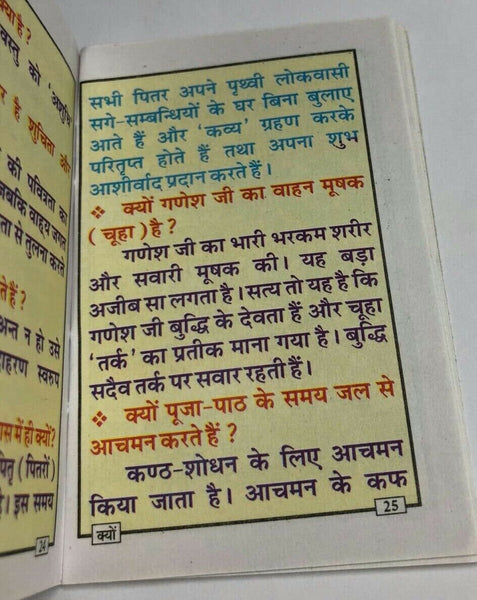 क्या है ?
वस्तु को 'अशुचि
र है शुचिता और
की पवित्रता का
जबकि वाह्य जगत
ता से तुलना करते
ते हैं ?
अन्त न हो उसे
हरण स्वरूप
ास में ही क्यों?
पितृ (पितरों)
है। इस समय
24
सभी पितर अपने पृथ्वी लोकवासी
सगे-सम्बन्धियों के घर बिना बुलाए
आते हैं और 'कव्य' ग्रहण करके
परितृप्त होते हैं तथा अपना शुभ
आशीर्वाद प्रदान करते हैं।
❖ क्यों गणेश जी का वाहन मूषक
(चूहा) है ?
गणेश जी का भारी भरकम शरीर
और सवारी मूषक की। यह बड़ा
अजीब सा लगता है। सत्य तो यह है कि
गणेश जी बुद्धि के देवता हैं और चूहा
'तर्क' का प्रतीक माना गया है। बुद्धि
सदैव तर्क पर सवार रहती हैं।
❖ क्यों पूजा-पाठ के समय जल से
आचमन करते हैं ?
कण्ठ-शोधन के लिए आचमन
किया जाता है। आचमन के कफ
क्यों
25